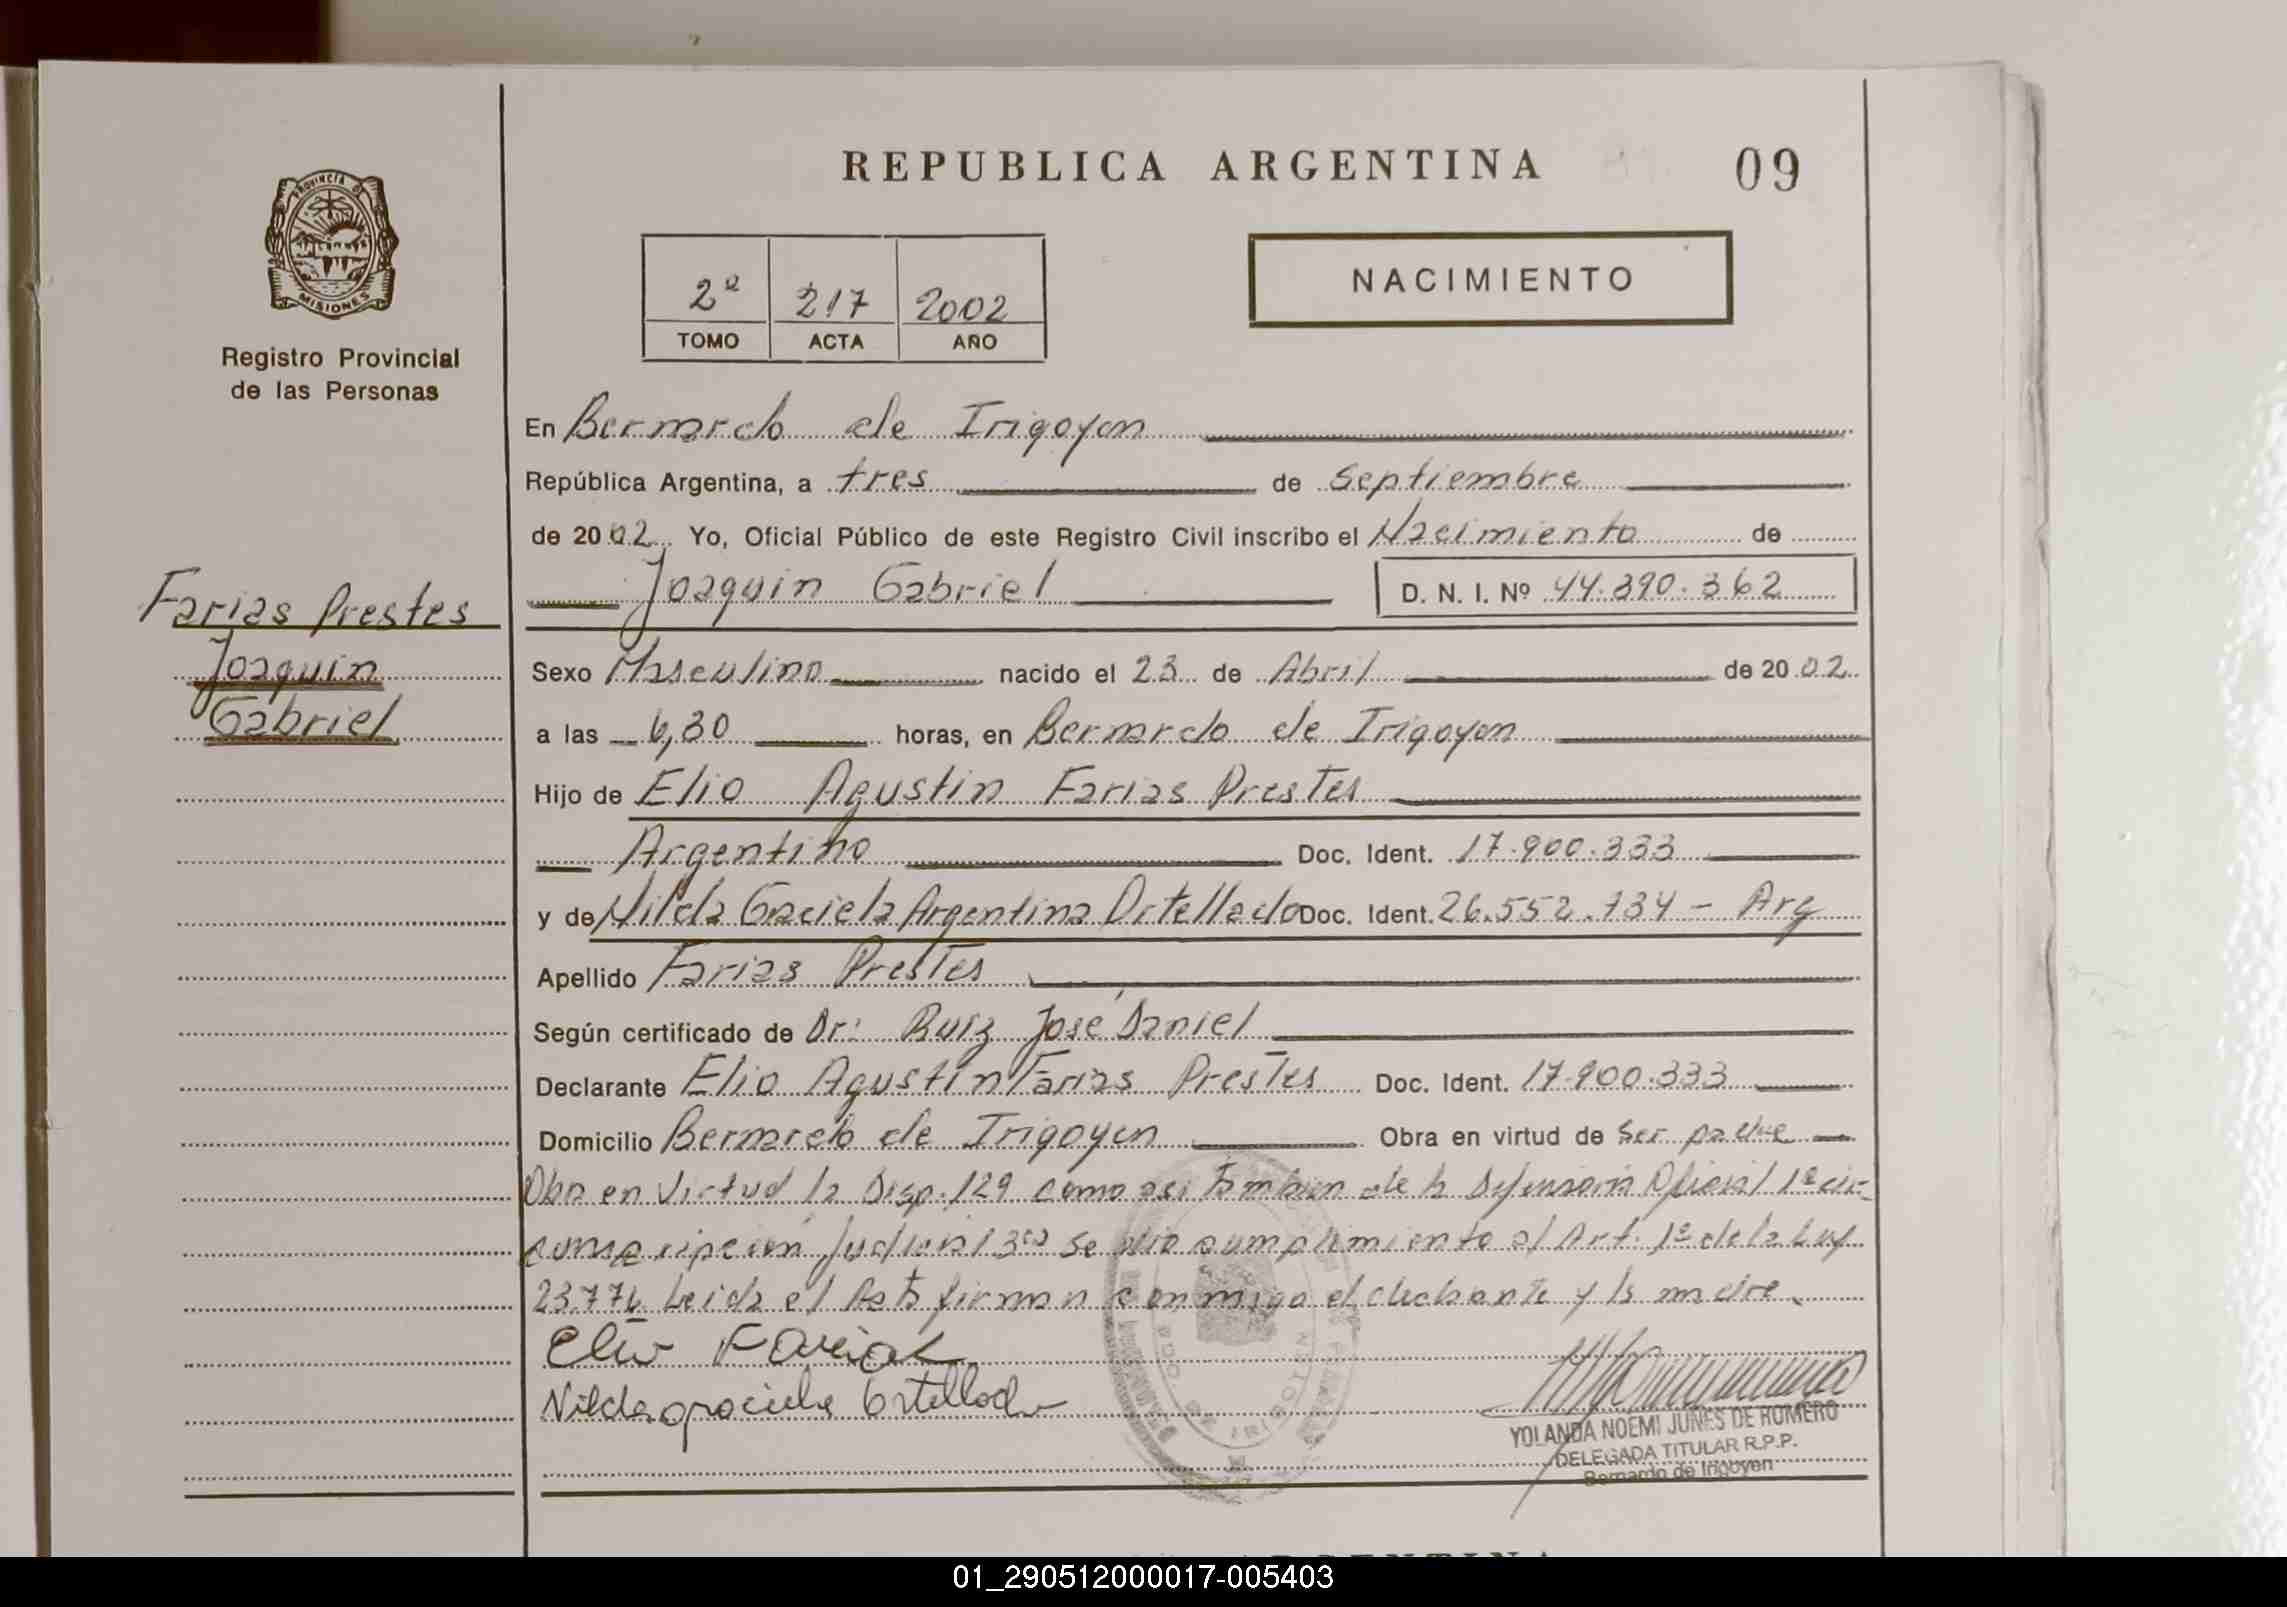 REPUBLICA ARGENTINA
09
PROVINCIA DE
MISIONES
Registro Provincial
de las Personas
2º 217 2002
TOMO ACTA AÑO
NACIMIENTO
En Bernardo de Irigoyen
República Argentina, a tres de Septiembre
de 2002 Yo, Oficial Público de este Registro Civil inscribo el Nacimiento de
Joaquin Gabriel D. N. I. Nº 44.390.362
Farias Prestes
Joaquin
Gabriel
Sexo Masculino nacido el 23 de Abril de 2002
a las 6,30 horas, en Bernardo de Irigoyen
Hijo de Elio Agustin Farias Prestes
Argentino Doc. Ident. 17.900.333
y de Nilda Graciela Argentina Ortellado Doc. Ident. 26.552.734 - Arg
Apellido Farias Prestes
Según certificado de Dr: Ruiz José Daniel
Declarante Elio Agustin Farias Prestes Doc. Ident. 17.900.333
Domicilio Bernardo de Irigoyen Obra en virtud de Ser padre
Obra en Virtud la Disp. 129 como asi Tambien de la Defensoria Oficial 1º cir-
cunscripcion Judicial 3ra se dio cumplimiento al Art. 1º de la Ley
23.776 Leida el Acta firman conmigo el declarante y la madre
Elio Farias
Nilda graciela Ortellado
YOLANDA NOEMI JUNES DE ROMERO
DELEGADA TITULAR R.P.P.
Bernardo de Irigoyen
01_290512000017-005403